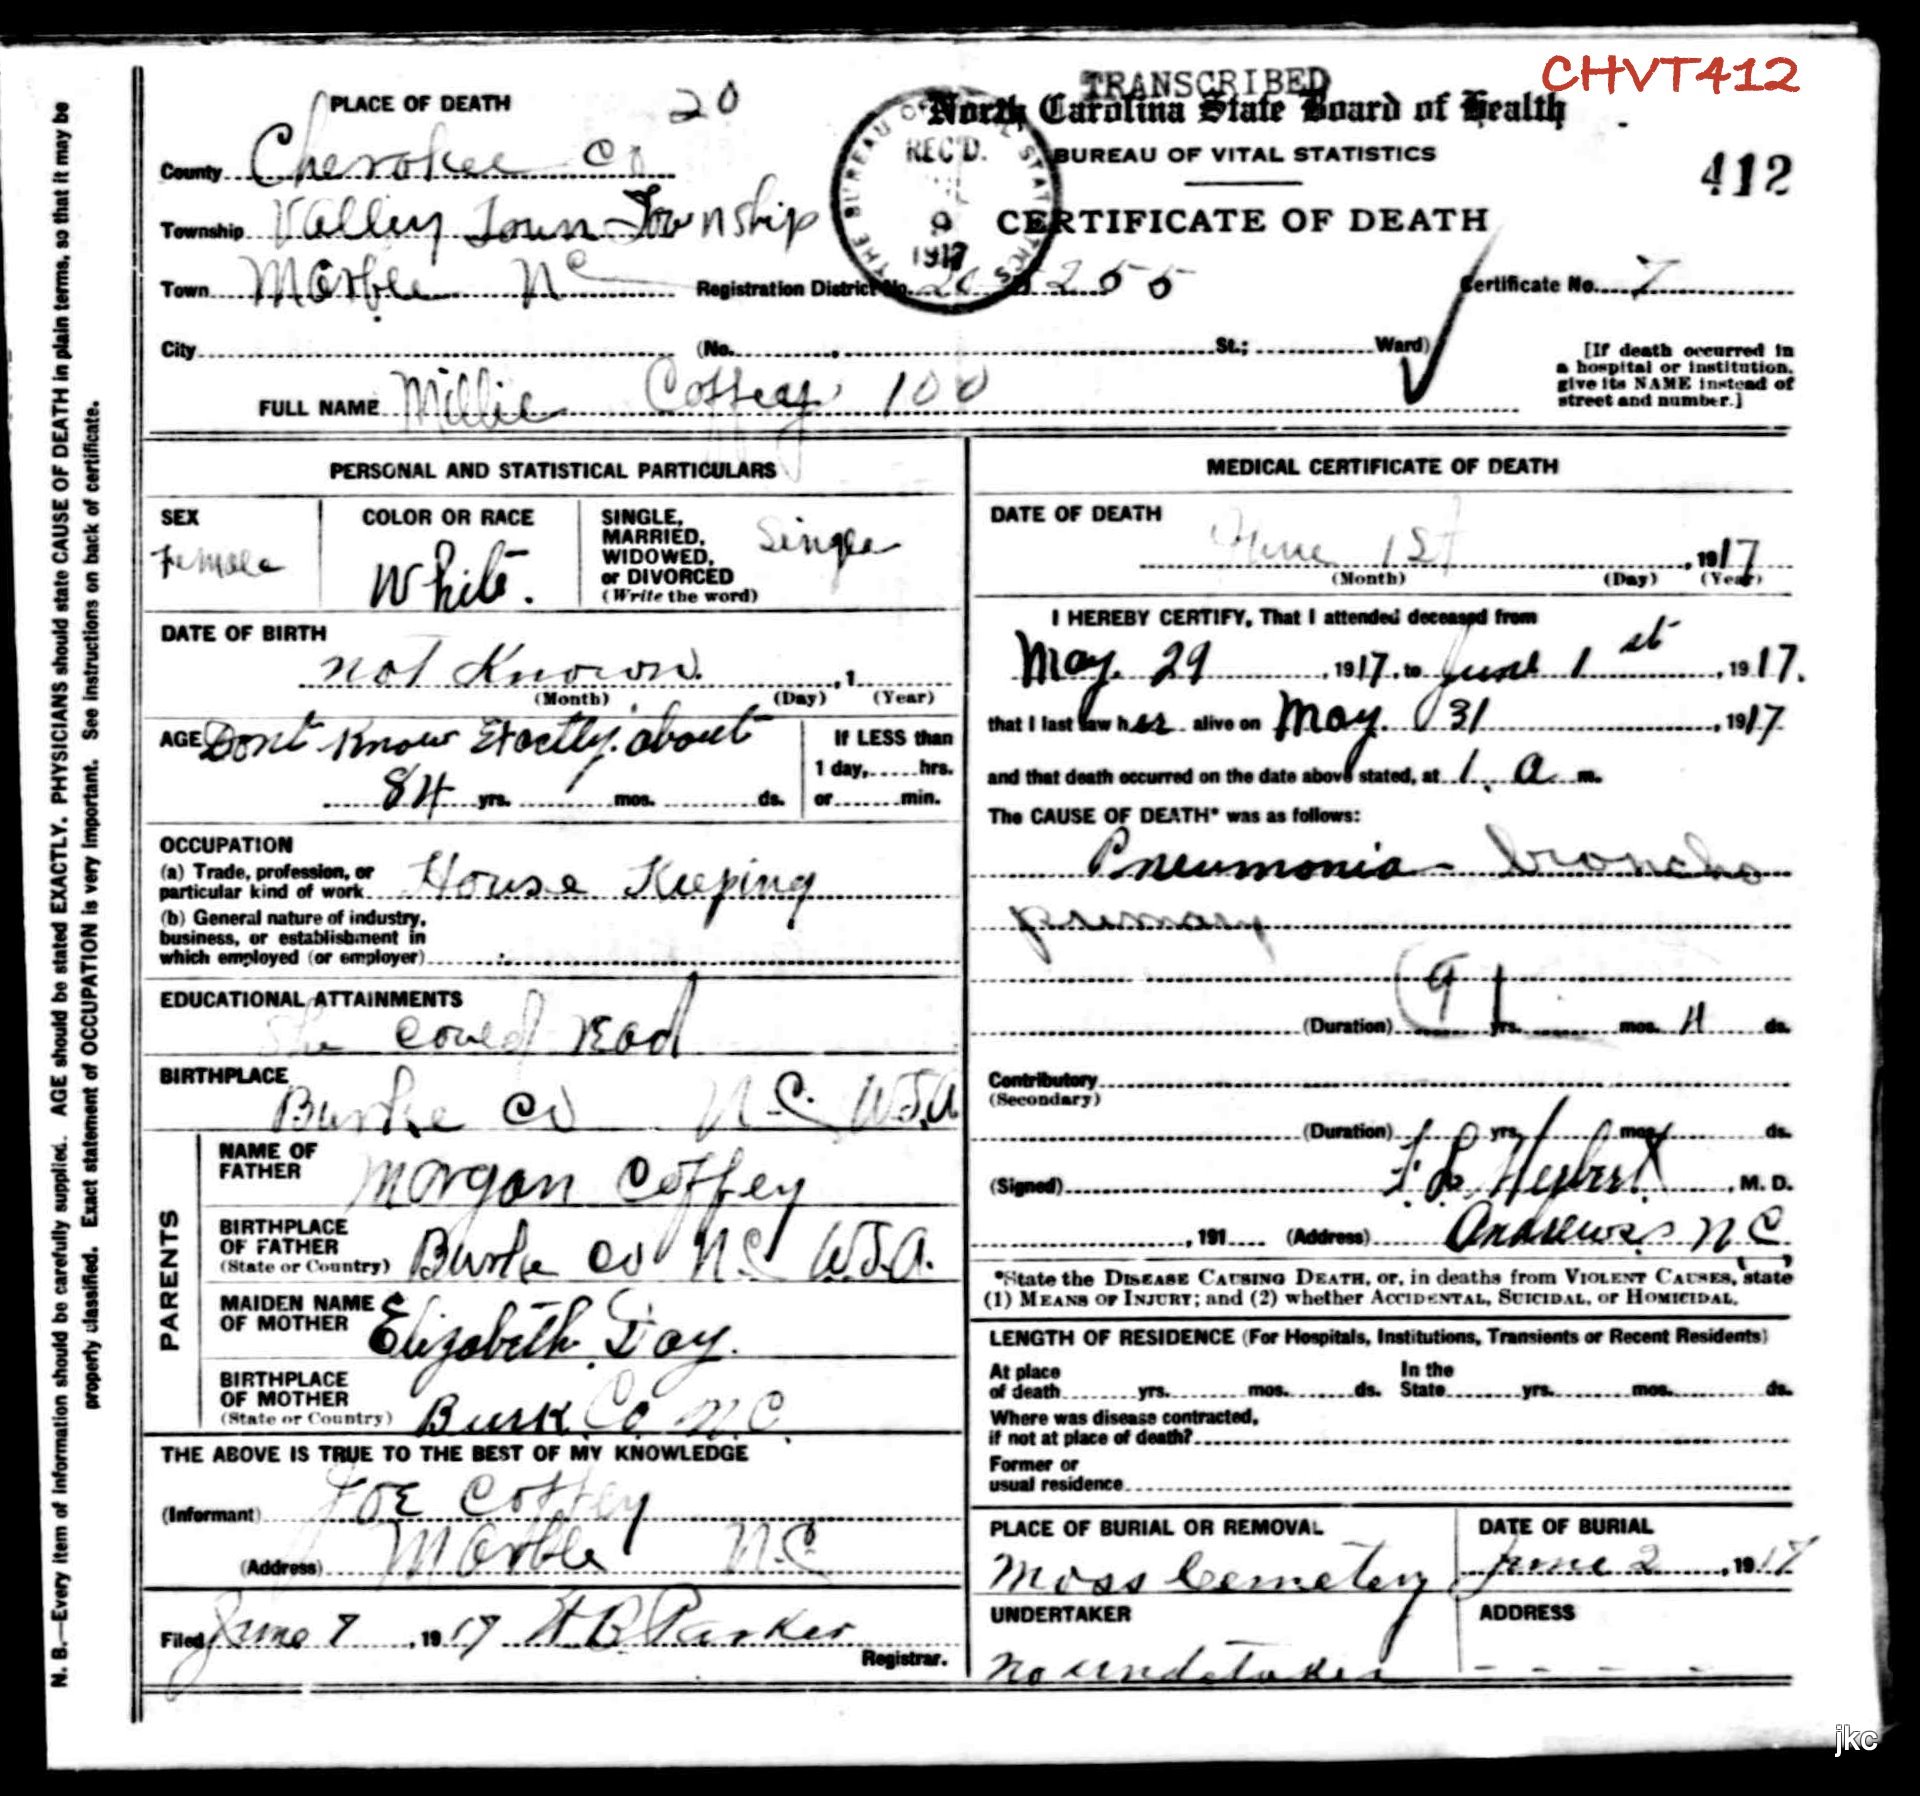 CHVT412
TRANSCRIBED
North Carolina State Board of Health
BUREAU OF VITAL STATISTICS
412
CERTIFICATE OF DEATH
REC'D.
9
1917
PLACE OF DEATH 20
County Cherokee Co
Township Valley Town Township
Town Marble NC Registration District No. 5255 Certificate No. 7
City (No. St.; Ward)
[If death occurred in
a hospital or institution,
give its NAME instead of
street and number.]
FULL NAME Millie Coffey 100
PERSONAL AND STATISTICAL PARTICULARS
SEX
Female
COLOR OR RACE
White.
SINGLE,
MARRIED,
WIDOWED,
or DIVORCED
(Write the word)
Single
DATE OF BIRTH
not Known.
, 1
(Month) (Day) (Year)
AGE Dont Know Exactly. about
84 yrs. mos. ds.
If LESS than
1 day, hrs.
or min.
OCCUPATION
(a) Trade, profession, or
particular kind of work House Keeping
(b) General nature of industry,
business, or establishment in
which employed (or employer)
EDUCATIONAL ATTAINMENTS
She could read
BIRTHPLACE
Burke Co N.C.
PARENTS
NAME OF
FATHER
Morgan Coffey
BIRTHPLACE
OF FATHER
(State or Country) Burke Co N.C.
MAIDEN NAME
OF MOTHER
Elizabeth
BIRTHPLACE
OF MOTHER
(State or Country) Burk Co. N.C.
THE ABOVE IS TRUE TO THE BEST OF MY KNOWLEDGE
(Informant) JOE Coffey
(Address) Marble N.C.
Filed June 7, 1917 Parker
Registrar.
MEDICAL CERTIFICATE OF DEATH
DATE OF DEATH
June 1st, 1917
(Month) (Day) (Year)
I HEREBY CERTIFY, That I attended deceased from
May. 29, 1917, to June 1st, 1917.
that I last saw her alive on May. 31, 1917
and that death occurred on the date above stated, at 1. a m.
The CAUSE OF DEATH* was as follows:
Pneumonia - broncho
primary
91
(Duration) yrs. mos. 4 ds.
Contributory
(Secondary)
(Duration) yrs. mos. ds.
(Signed) , M. D.
, 191 (Address) Andrews N C
*State the DISEASE CAUSING DEATH, or, in deaths from VIOLENT CAUSES, state
(1) MEANS OF INJURY; and (2) whether ACCIDENTAL, SUICIDAL, or HOMICIDAL.
LENGTH OF RESIDENCE (For Hospitals, Institutions, Transients or Recent Residents)
At place
of death yrs. mos. ds.
In the
State yrs. mos. ds.
Where was disease contracted,
if not at place of death?
Former or
usual residence
PLACE OF BURIAL OR REMOVAL
Moss Cemetery
DATE OF BURIAL
June 2, 1917
UNDERTAKER
no undertaker
ADDRESS
- - - -
N. B.—Every item of information should be carefully supplied. AGE should be stated EXACTLY. PHYSICIANS should state CAUSE OF DEATH in plain terms, so that it may be
properly classified. Exact statement of OCCUPATION is very important. See instructions on back of certificate.
jkc